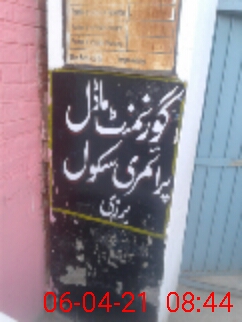 گورنمنٹ ماڈل
پرائمری سکول
برزی
06-04-21 08:44